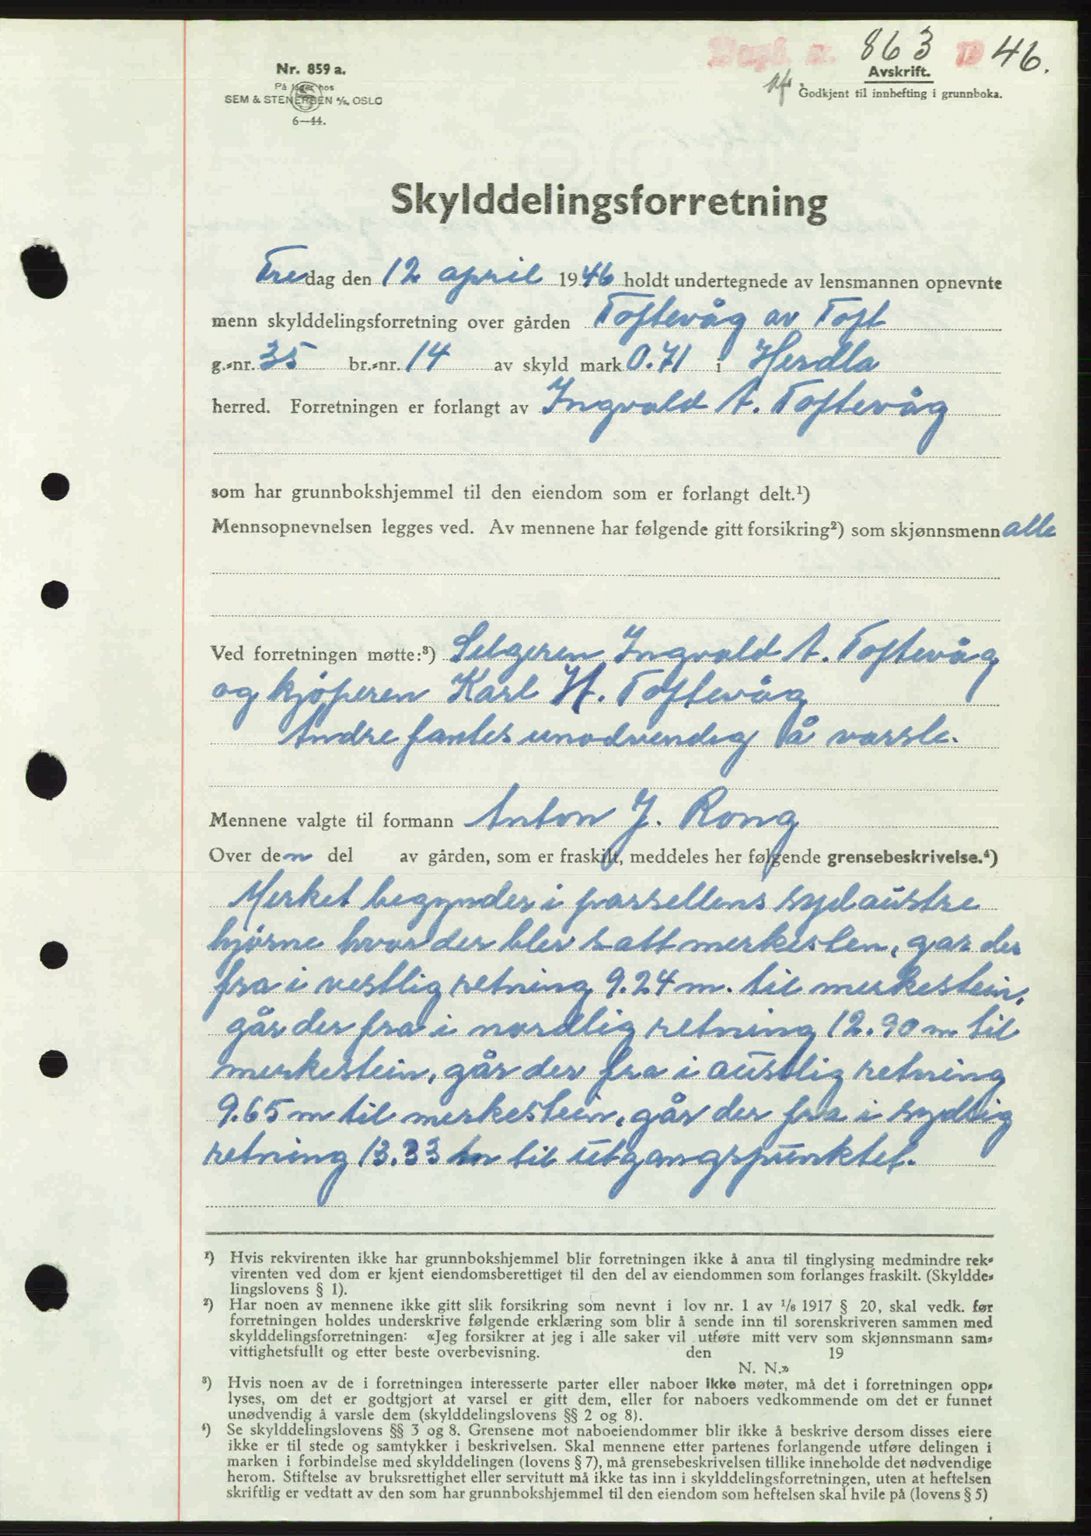 Dagb. nr. 863 19 46.
Nr. 859 a.
På lager hos
SEM & STENERSEN A/S, OSLO
6—44.
Avskrift.
Godkjent til innhefting i grunnboka.
Skylddelingsforretning
Fredag den 12 april 1946 holdt undertegnede av lensmannen opnevnte
menn skylddelingsforretning over gården Toftevåg av Toft
g.-nr. 35 br.-nr. 14 av skyld mark 0.71 i Herdla
herred. Forretningen er forlangt av Ingvald A. Toftevåg
som har grunnbokshjemmel til den eiendom som er forlangt delt.¹)
Mennsopnevnelsen legges ved. Av mennene har følgende gitt forsikring²) som skjønnsmenn alle
Ved forretningen møtte:³) Selgeren Ingvald A. Toftevåg
og kjøperen Karl H. Toftevåg
Andre fantes unødvendig å varsle.
Mennene valgte til formann Anton J. Rong
Over den del av gården, som er fraskilt, meddeles her følgende grensebeskrivelse.⁴)
Merket begynder i parsellens sydaustre
hjørne hvor der blev satt merkesten, gar der
fra i vestlig retning 9.24 m. til merkestein,
går der fra i nordlig retning 12.90 m til
merkestein, går der fra i austlig retning
9.65 m til merkestein, går der fra i sydlig
retning 13.33 m til utgangspunktet.
¹) Hvis rekvirenten ikke har grunnbokshjemmel blir forretningen ikke å anta til tinglysing medmindre rek-
virenten ved dom er kjent eiendomsberettiget til den del av eiendommen som forlanges fraskilt. (Skyldde-
lingslovens § 1).
²) Har noen av mennene ikke gitt slik forsikring som nevnt i lov nr. 1 av 1/6 1917 § 20, skal vedk. før
forretningen holdes underskrive følgende erklæring som blir å sende inn til sorenskriveren sammen med
skylddelingsforretningen: «Jeg forsikrer at jeg i alle saker vil utføre mitt verv som skjønnsmann sam-
vittighetsfullt og etter beste overbevisning. den 19
N. N.»
³) Hvis noen av de i forretningen interesserte parter eller naboer ikke møter, må det i forretningen opp-
lyses, om det er godtgjort at varsel er gitt dem, eller for naboers vedkommende om det er funnet
unødvendig å varsle dem (skylddelingslovens §§ 2 og 8).
⁴) Se skylddelingslovens §§ 3 og 8. Grensene mot naboeiendommer blir ikke å beskrive dersom disses eiere
ikke er til stede og samtykker i beskrivelsen. Skal mennene etter partenes forlangende utføre delingen i
marken i forbindelse med skylddelingen (lovens § 7), må grensebeskrivelsen tillike inneholde det nødvendige
herom. Stiftelse av bruksrettighet eller servitutt må ikke tas inn i skylddelingsforretningen, uten at heftelsen
skriftlig er vedtatt av den som har grunnbokshjemmel til den eiendom som heftelsen skal hvile på (lovens § 5)